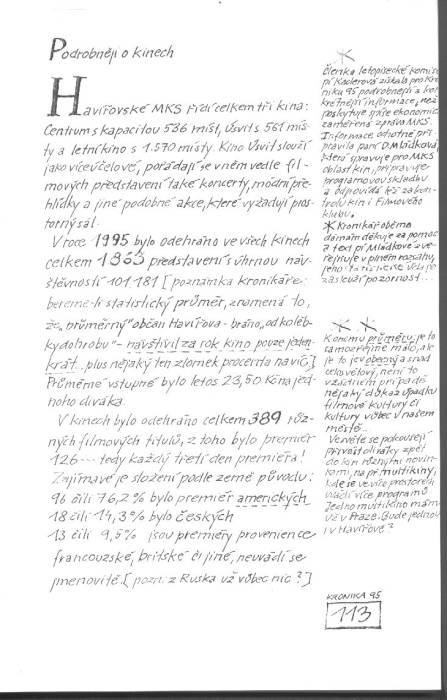 Podrobněji o kinech
Havířovské MKS řídí celkem tři kina:
Centrum s kapacitou 536 míst, Úsvit s 561 mís-
ty a letní kino s 1.570 místy. Kino Úsvit slouží
jako víceúčelové, pořádají se v něm vedle fil-
mových představení také koncerty, módní pře-
hlídky a jiné podobné akce, které vyžadují pros-
torný sál.
V roce 1995 bylo odehráno ve všech kinech
celkem 1353 představení s úhrnou náv-
štěvností 101.181 [poznámka kronikáře:
bereme-li statistický průměr, znamená to,
že "průměrný" občan Havířova - bráno "od koléb-
ky do hrobu" - navštívil za rok kino pouze jeden-
krát...plus nějaký ten zlomek procenta navíc]
Průměrné vstupné bylo letos 23,50 Kč na jed-
noho diváka.
V kinech bylo odehráno celkem 389 růz-
ných filmových titulů, z toho bylo premiér
126 --- tedy každý třetí den premiéra!
Zajímavé je složení podle země původu:
96 čili 76,2% bylo premiér amerických
18 čili 14,3% bylo českých
13 čili 9,5% jsou premiéry provenience
francouzské, britské či jiné, neuvádí se
jmenovitě. [pozn: z Ruska už vůbec nic?]
*
Členka letopisecké komise
pí Kaclerová získala pro Kro-
niku 95 podrobnější a kon-
krétnější informace, než
poskytuje spíše ekonomicky
zaměřená zpráva MKS.
Informace ochotně při-
pravila paní D. Mládková,
která spravuje pro MKS
oblast kin, připravuje
programovou skladbu
a odpovídá též za kon-
trolu kin i Filmového
klubu.
* Kronikář oběma
dámám děkuje za pomoc
a text pí Mládkové uve-
řejňuje v plném rozsahu,
zaslouží pozornost...
* *
K onomu průměru: je to
samozřejmě málo, ale
je to jev obecný a snad
celosvětový, není to
v žádném případě
nějaký důkaz úpadku
filmové kultury či
kultury vůbec v našem
městě...
Ve světě se pokoušejí
přivést diváky zpět
do kin různými novin-
kami, na př. multikiny,
kde je ve více prostorech
více programů
Jedno multikino máme
už v Praze. Bude jednou
i v Havířově?
KRONIKA 95
113